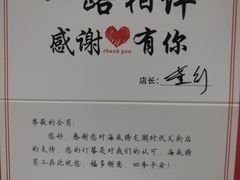 一路相伴
感谢 有你
thank you
店长：
尊敬的会员：
您好，感谢您对海底捞龙湖时代天街店
的支持，您的订餐是对我们的认可，海底捞
员工在此祝您，福多顺意，四季平安！